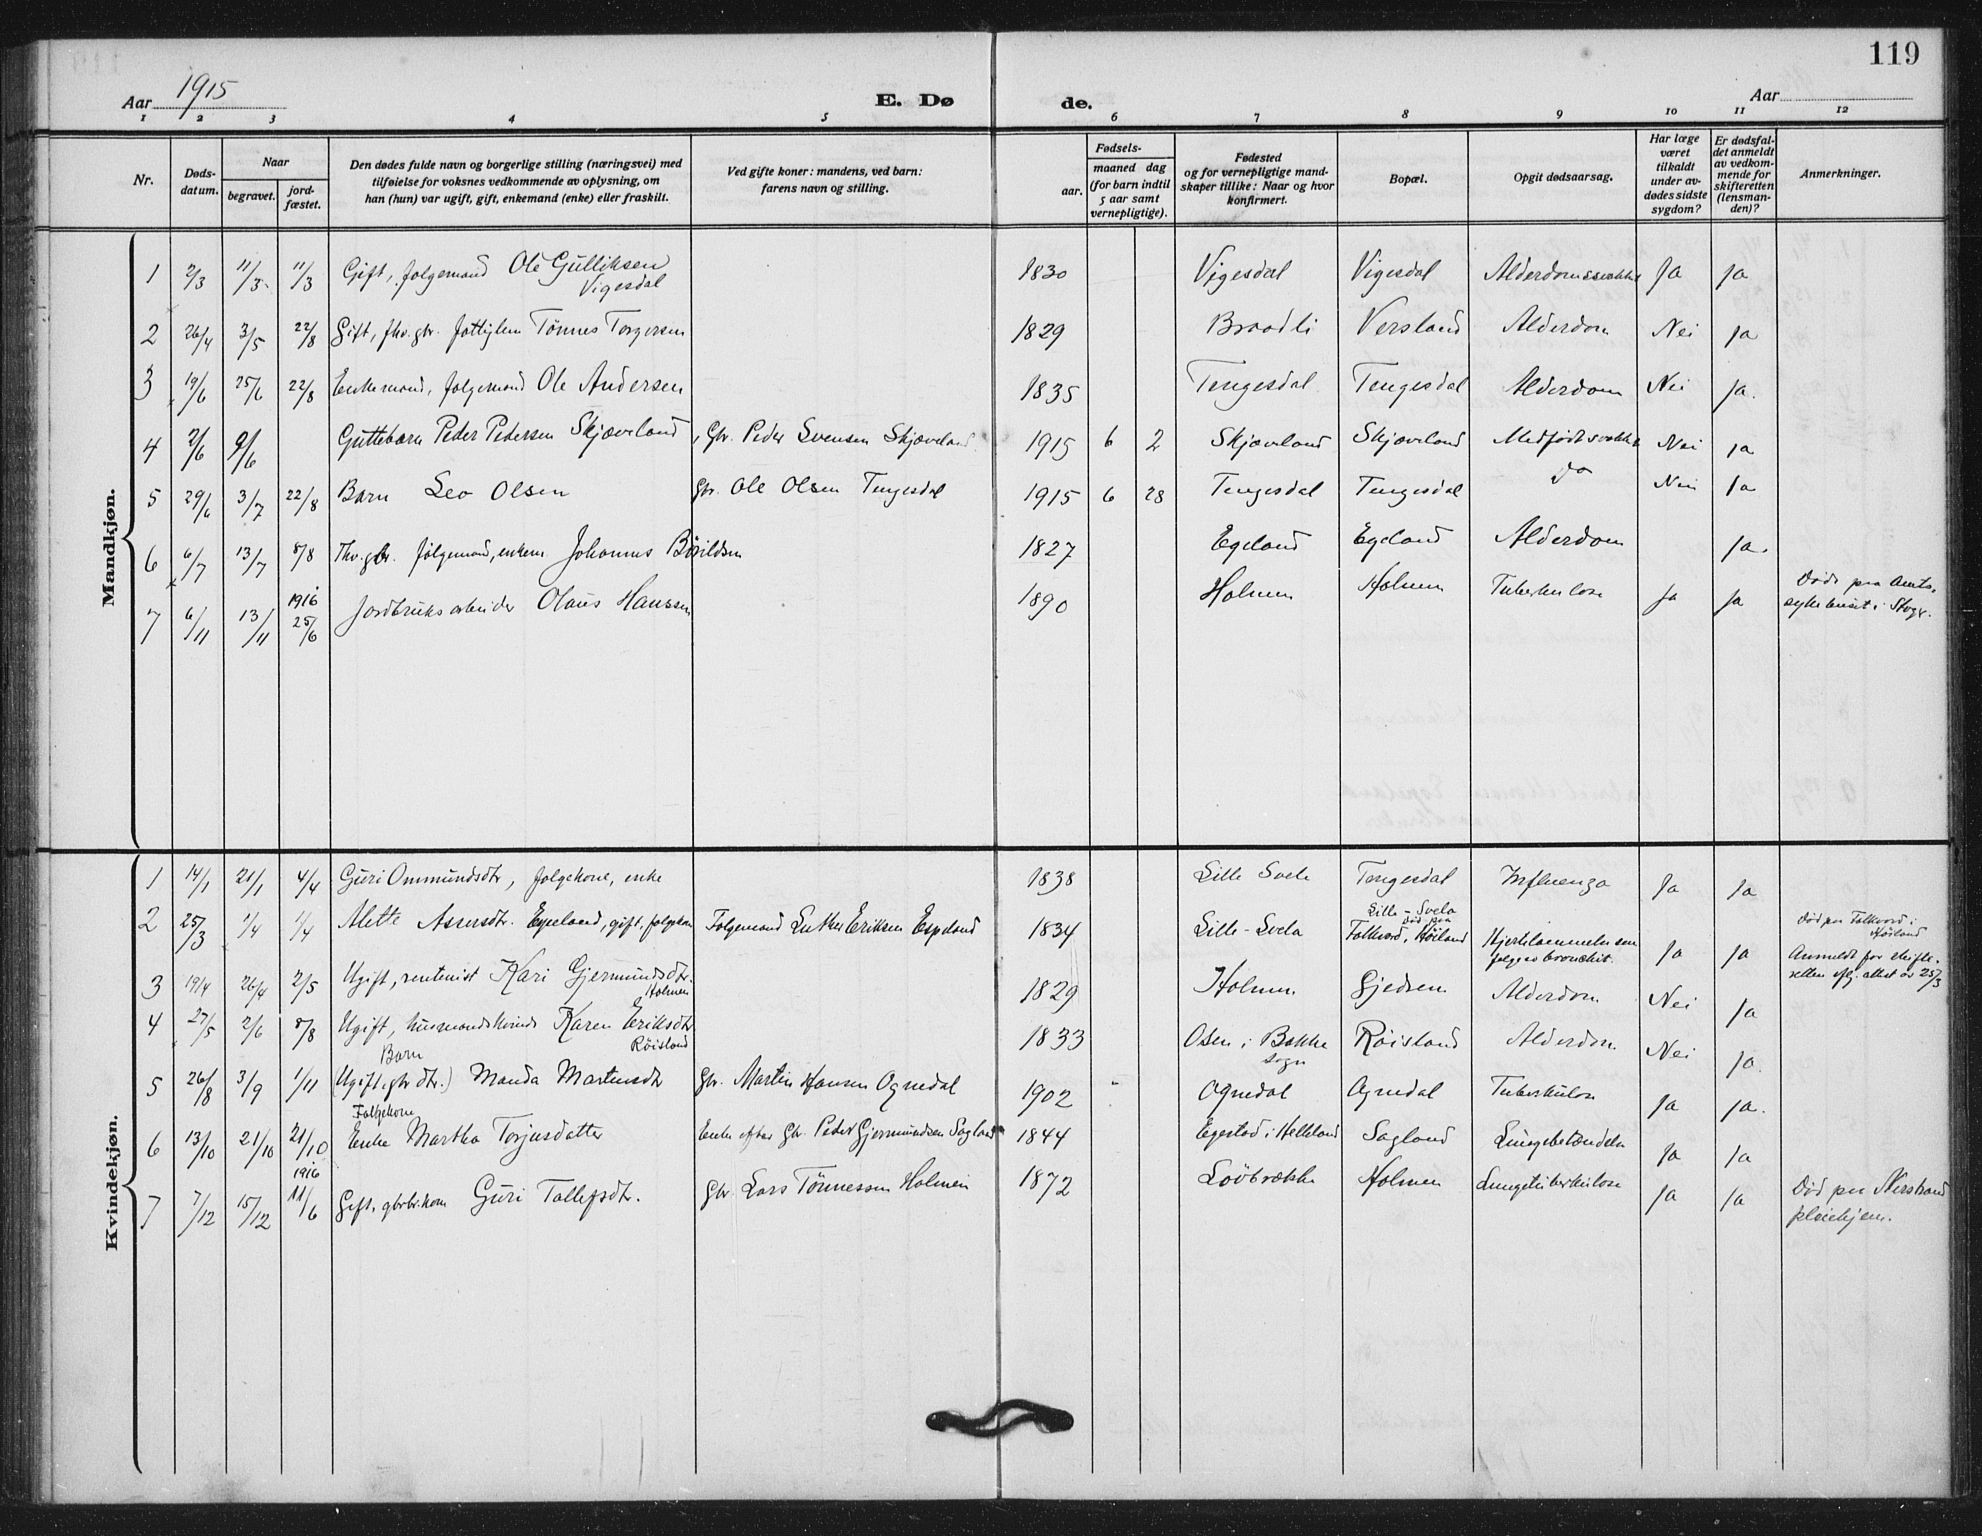 119
Aar 1915
E. Døde.
Aar
1 2 3 4 5 6 7 8 9 10 11 12
Nr.
Dødsdatum.
Naar
begravet.
jordfæstet.
Den dødes fulde navn og borgerlige stilling (næringsvei) med
tilføielse for voksnes vedkommende av oplysning, om
han (hun) var ugift, gift, enkemand (enke) eller fraskilt.
Ved gifte koner: mandens, ved barn:
farens navn og stilling.
Fødsels-
aar.
maaned dag
(for barn indtil
5 aar samt
vernepligtige).
Fødested
og for vernepligtige mand-
skaper tillike: Naar og hvor
konfirmert.
Bopæl.
Opgit dødsaarsag.
Har læge
været
tilkaldt
under av-
dødes sidste
sygdom?
Er dødsfal-
det anmeldt
av vedkom-
mende for
skifteretten
(lensman-
den)?
Anmerkninger.
Mandkjøn.
1 2/3 11/3 11/3 Gift, folgemand Ole Gulliksen Vigesdal 1830 Vigesdal Vigesdal Alderdomssvakhet Ja Ja
2 26/4 3/5 22/8 Gift, fhv. gbr. fattiglem Tönnes Torgersen 1829 Braadli Versland Alderdom Nei Ja
3 19/6 25/6 22/8 Enkemand, folgemand Ole Andersen 1835 Tengesdal Tengesdal Alderdom Nei Ja.
4 2/6 9/6 Guttebarn Peder Pedersen Skjæveland, Gbr. Peder Svensen Skjæveland 1915 6 2 Skjæveland Skjæveland Medfødt svakhet Nei Ja
5 29/6 3/7 22/8 Barn Leo Olsen Gbr. Ole Olsen Tengesdal 1915 6 28 Tengesdal Tengesdal Do Nei Ja
6 6/7 13/7 8/8 Fhv. gbr. folgemand, enkem. Johannes Bårildsen 1827 Egeland Egeland Alderdom Ja.
7 6/11 13/11 1916 25/6 Jordbruksarbeider Olaus Hanssen 1890 Holmen Holmen Tuberkulose Ja Ja Døde paa Amts-
sykehuset i Stvgr.
Kvindekjøn.
1 14/1 21/1 4/4 Guri Ommundsdtr, folgekone, enke 1838 Lille Svela Tengesdal Influenza Ja Ja
2 25/3 1/4 1/4 Alette Assersdtr. Espeland, gift, folgekone Folgemand Luther Eriksen Espeland 1834 Lille-Svela Lille-Svela
død paa
Folkvord i Høiland Hjertelammelse som
følge av bronchit. Ja Ja Død paa Folkvord i
Høiland
Anmeldt for skifte-
retten efg. attest av 25/3
3 19/4 26/4 2/5 Ugift, rentenist Kari Gjermundsdtr. Holmen 1829 Holmen Gjedrem Alderdom Nei Ja
4 27/5 2/6 8/8 Ugift, husmandskvinde Karen Eriksdtr Röisland 1833 Osen i Bakke
sogn Röisland Alderdom Nei Ja.
Barn
5 26/8 3/9 1/11 (Ugift, gbr dtr.) Manda Martinsdtr Gbr. Martin Hansen Ognedal 1902 Ognedal Ognedal Tuberkulose Ja Ja.
Folgekone
6 13/10 21/10 21/10 Enke Martha Torjusdatter Enke efter Gbr. Peder Gjermundsen Sagland 1844 Egestad i Helleland Sagland Lungebetændelse Ja Ja
7 7/12 15/12 1916 11/6 Gift, gbr. kone Guri Tollefsdtr. Gbr. Lars Tönnessen Holmen 1872 Lövbrække Holmen Lungetuberkulose Ja Ja Död paa Nerstrand
pleiehjem.